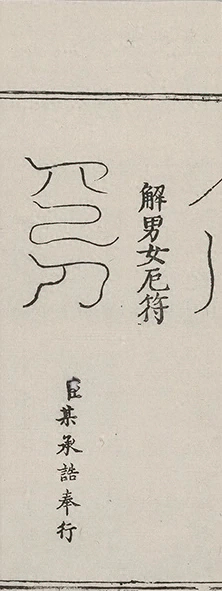 解男女厄符
臣某承誥奉行